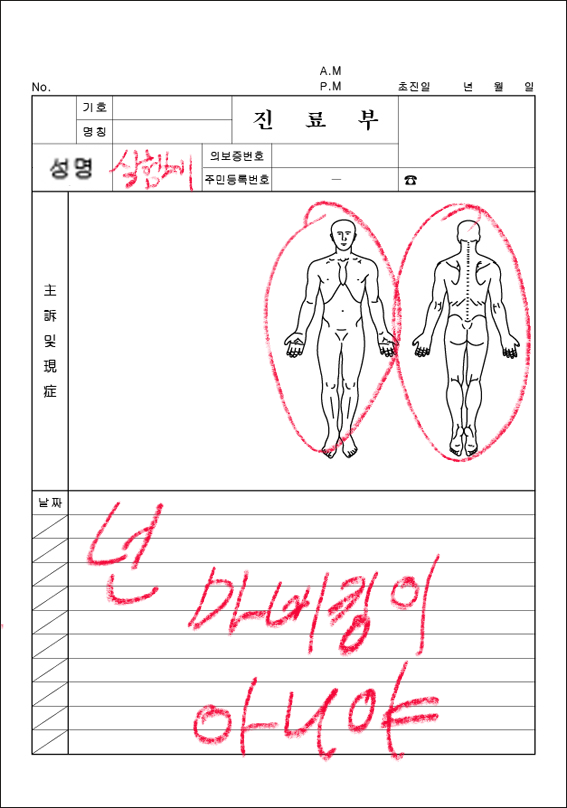 A.M
No. P.M 초진일 년 월 일
기호
명칭
진 료 부
성명 실험체 의보증번호
주민등록번호 — ☎
主訴 및 現症
날짜
넌
마네킹이
아니야